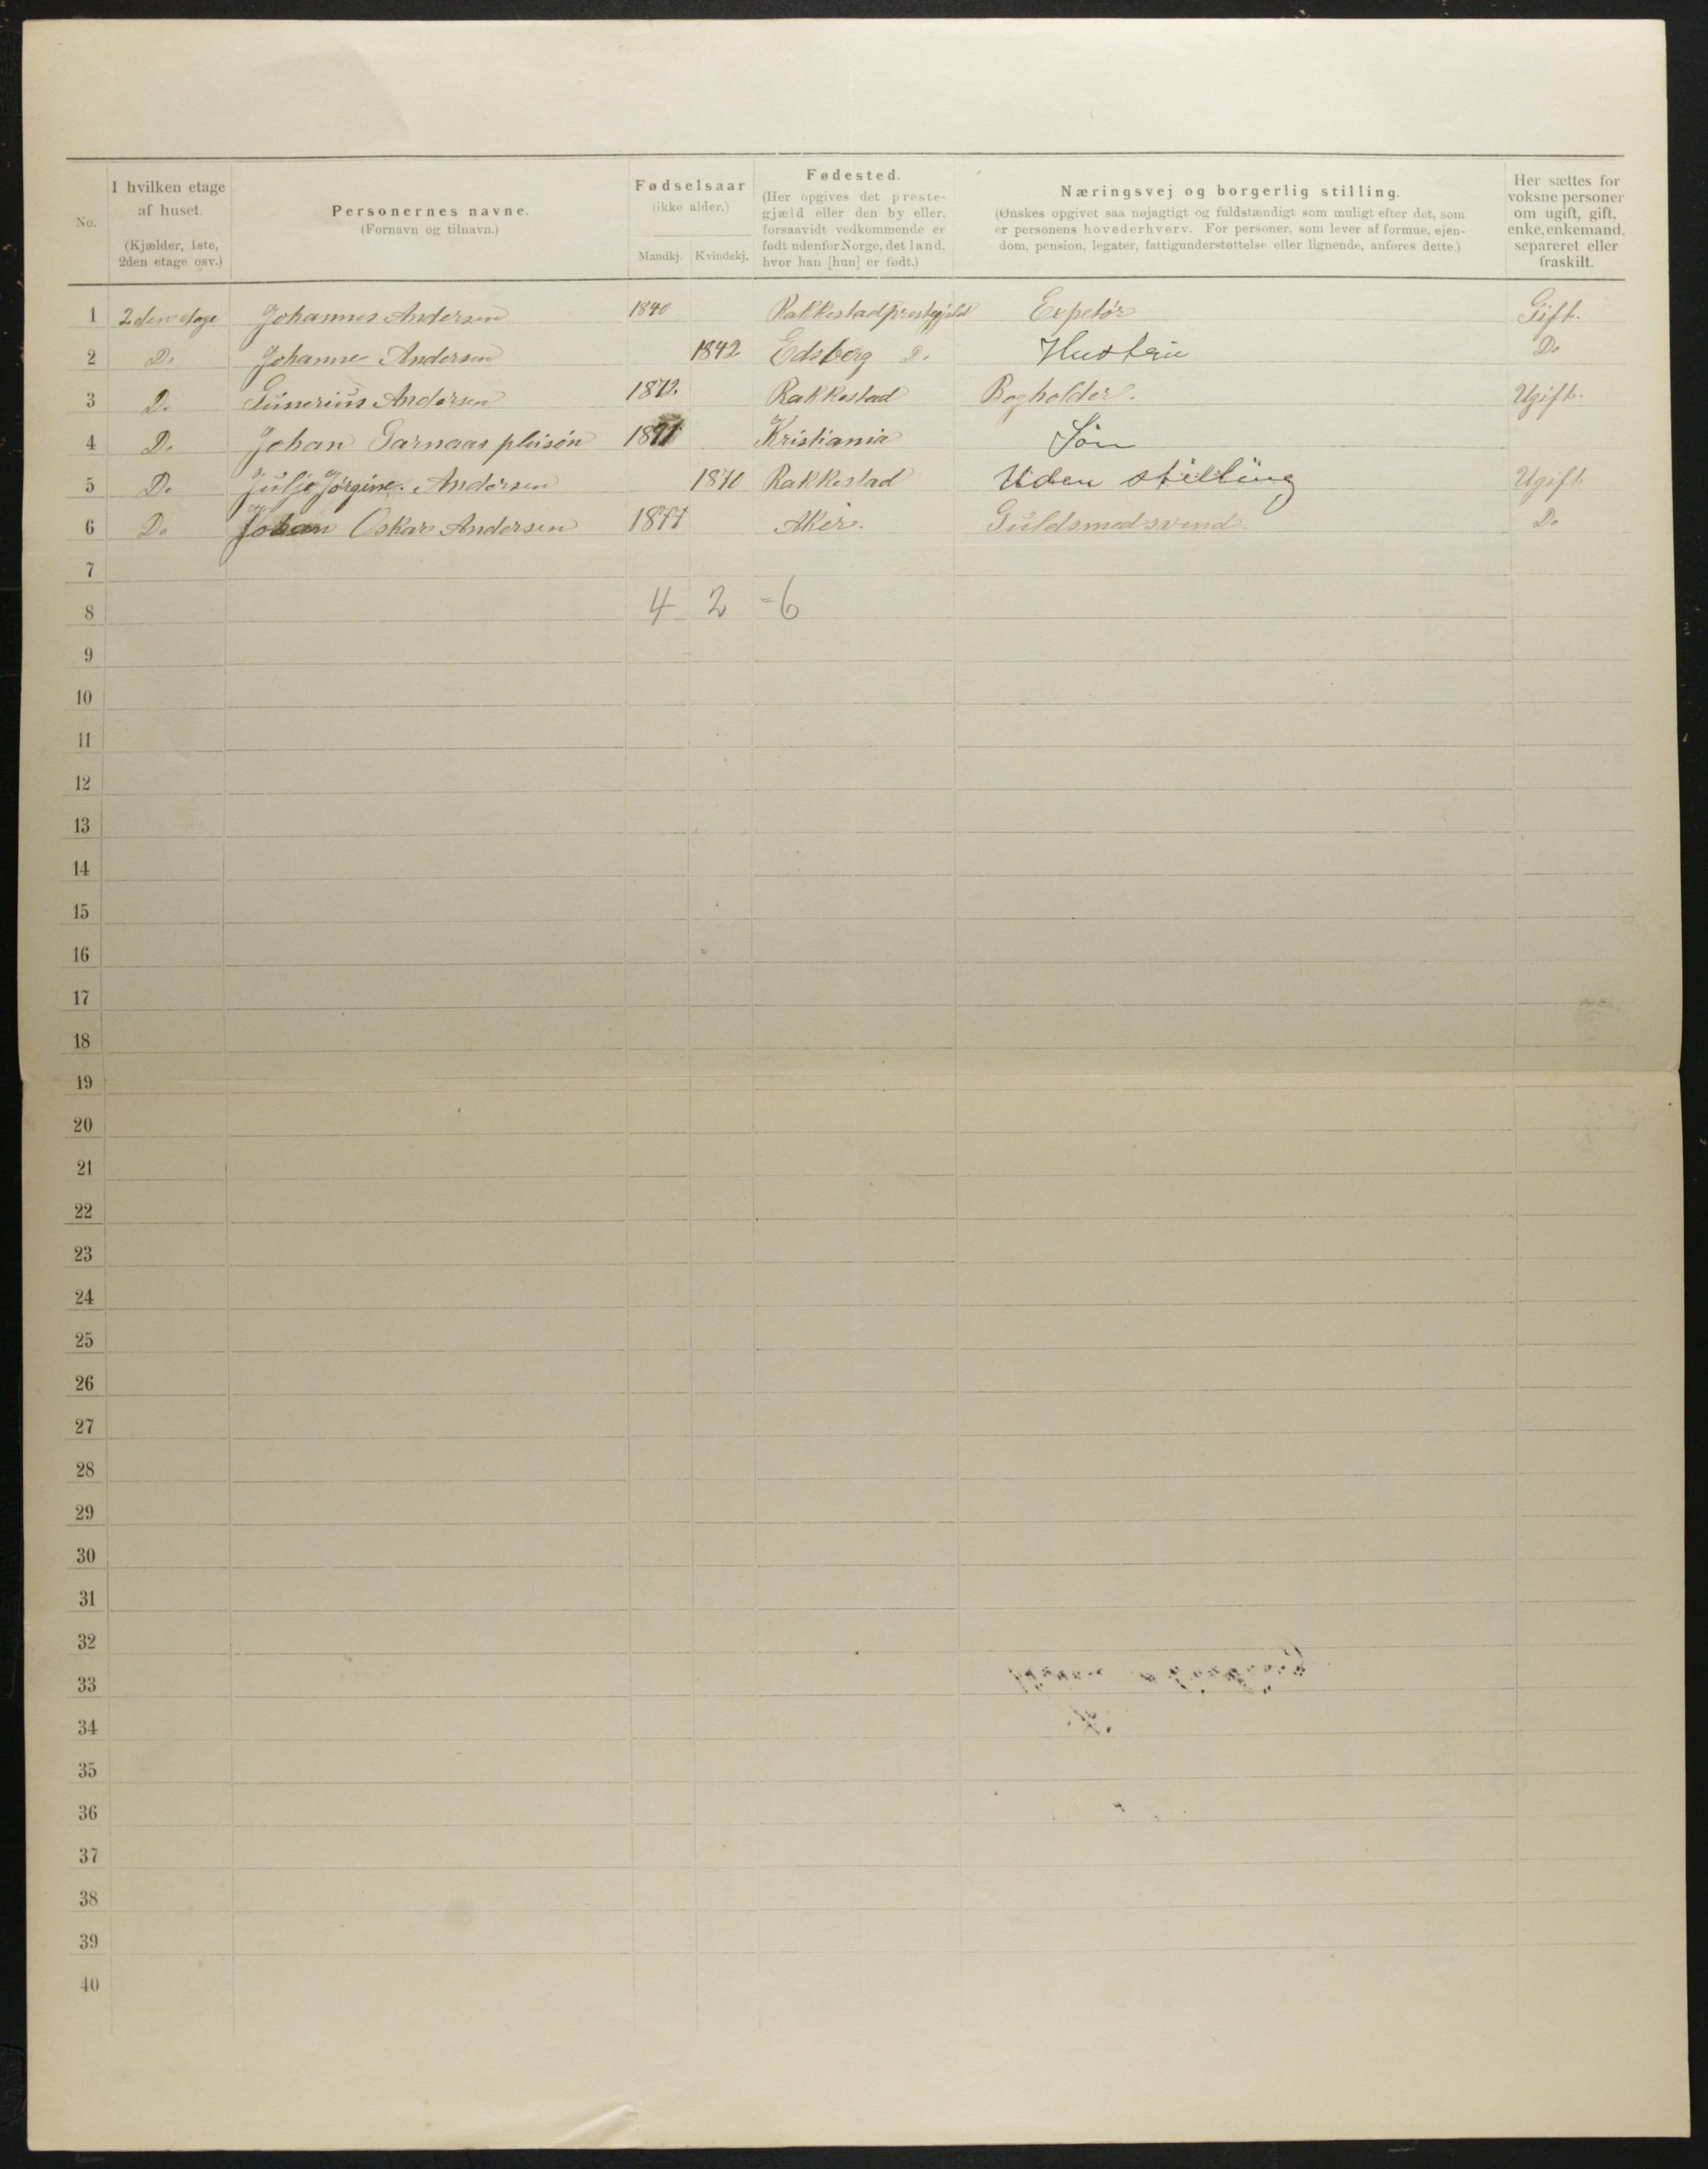 No.
I hvilken etage af huset.
(Kjælder, 1ste, 2den etage osv.)
Personernes navne.
(Fornavn og tilnavn.)
Fødselsaar
(ikke alder.)
Mandkj. Kvindekj.
Fødested.
(Her opgives det preste-
gjæld eller den by eller,
forsaavidt vedkommende er
født udenfor Norge, det land,
hvor han [hun] er født.)
Næringsvej og borgerlig stilling.
(Ønskes opgivet saa nøjagtigt og fuldstændigt som muligt efter det, som
er personens hovederhverv. For personer, som lever af formue, ejen-
dom, pension, legater, fattigunderstøttelse eller lignende, anføres dette.)
Her sættes for
voksne personer
om ugift, gift,
enke, enkemand,
separeret eller
fraskilt.
1 2den etage Johannes Andersen 1840 Rakkestad prestegjeld Expetør Gift.
2 Do Johanne Andersen 1842 Edsberg Do Hustru Do
3 Do Andersen 1872 Rakkestad Bogholder. Ugift.
4 Do Johan Garnaas pleisön Kristiania Sön
5 Do Julje Jörgine Andersen 1870 Rakkestad Uden stilling Ugift
6 Do Johan Oskar Andersen 1877 Aker. Guldsmedsvend. Do
7
8 4 2 =6
9
10
11
12
13
14
15
16
17
18
19
20
21
22
23
24
25
26
27
28
29
30
31
32
33
34
35
36
37
38
39
40